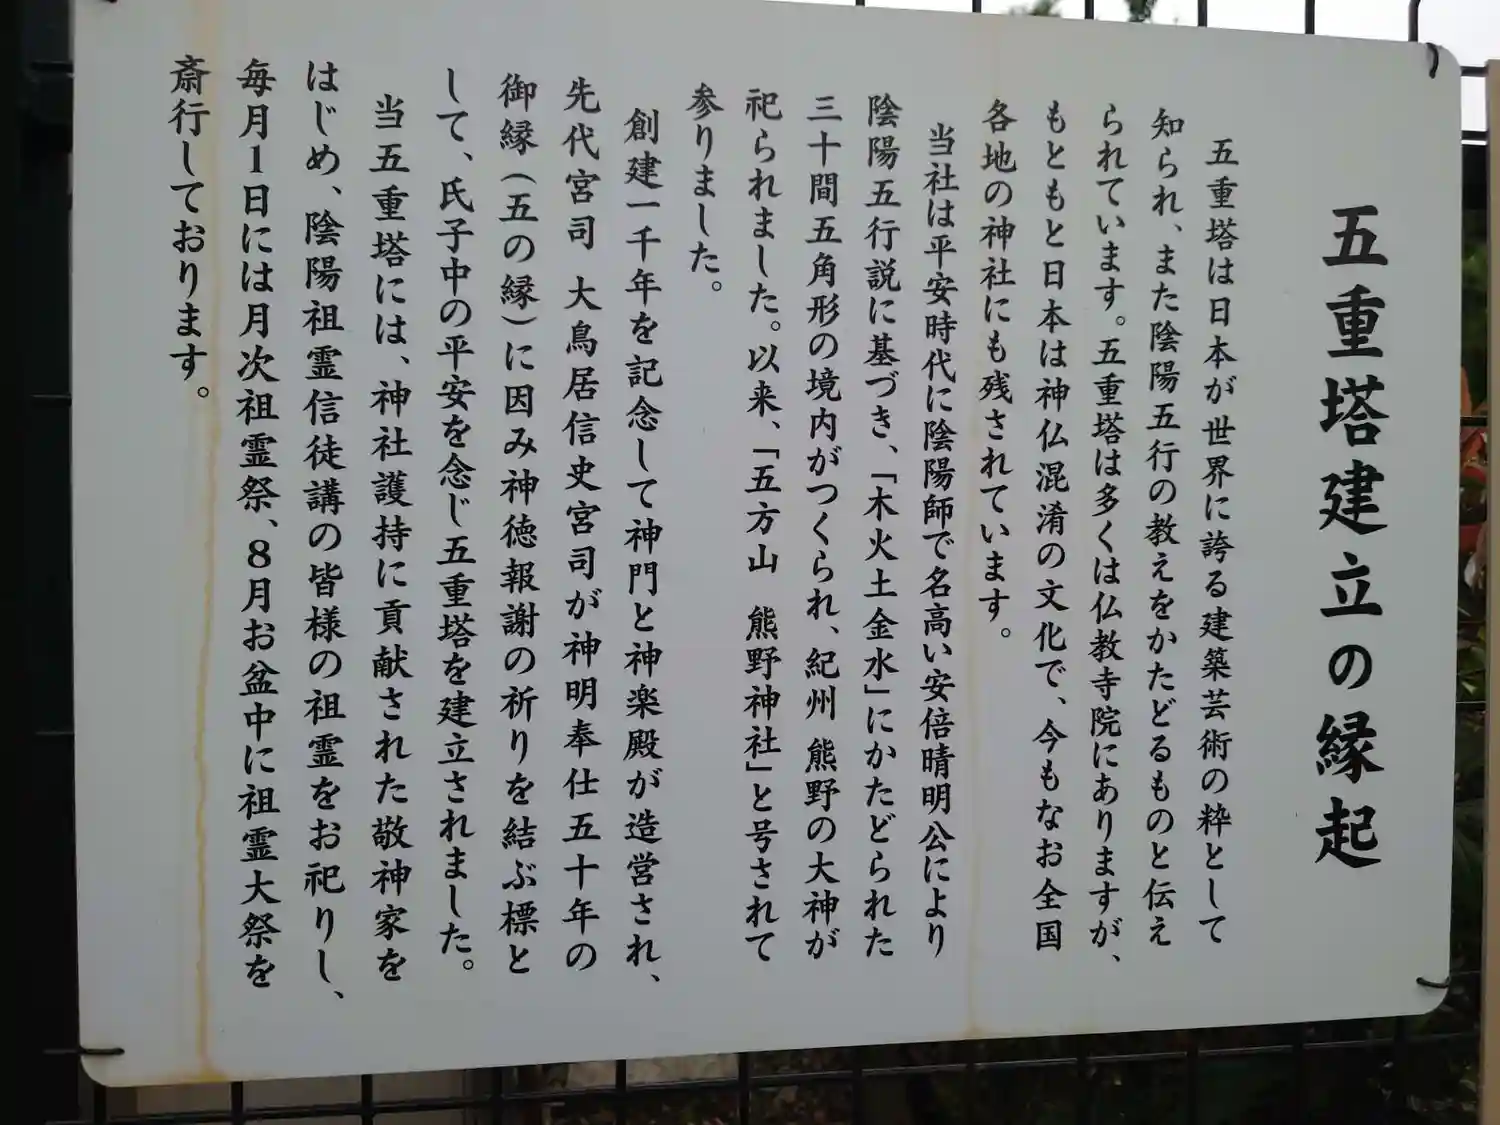 五重塔建立の縁起
五重塔は日本が世界に誇る建築芸術の粋として
知られ、また陰陽五行の教えをかたどるものと伝え
られています。五重塔は多くは仏教寺院にありますが、
もともと日本は神仏混淆の文化で、今もなお全国
各地の神社にも残されています。
当社は平安時代に陰陽師で名高い安倍晴明公により
陰陽五行説に基づき、「木火土金水」にかたどられた
三十間五角形の境内がつくられ、紀州 熊野の大神が
祀られました。以来、「五方山 熊野神社」と号されて
参りました。
創建一千年を記念して神門と神楽殿が造営され、
先代宮司 大鳥居信史宮司が神明奉仕五十年の
御縁(五の縁)に因み神徳報謝の祈りを結ぶ標と
して、氏子中の平安を念じ五重塔を建立されました。
当五重塔には、神社護持に貢献された敬神家を
はじめ、陰陽祖霊信徒講の皆様の祖霊をお祀りし、
毎月1日には月次祖霊祭、8月お盆中に祖霊大祭を
斎行しております。